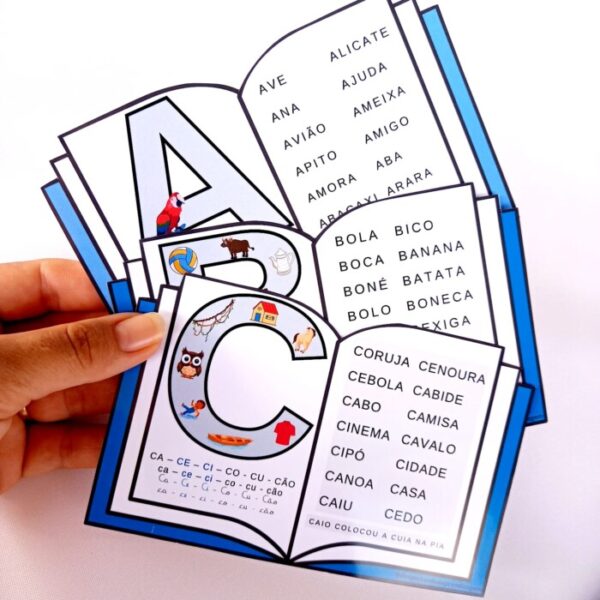 A
AVE ALICATE
ANA AJUDA
AVIÃO AMEIXA
APITO AMIGO
AMORA ABA
ABACAXI ARARA
B
BOLA BICO
BOCA BANANA
BONÉ BATATA
BOLO BONECA
C
CA – CE – CI – CO - CU - CÃO
ca – ce – ci – co - cu – cão
Ca - Ce - Ci - Co - Cu - Cão
ca - ce - ci - co - cu - cão
CORUJA CENOURA
CEBOLA CABIDE
CABO CAMISA
CINEMA CAVALO
CIPÓ CIDADE
CANOA CASA
CAIU CEDO
CAIO COLOCOU A CUIA NA PIA